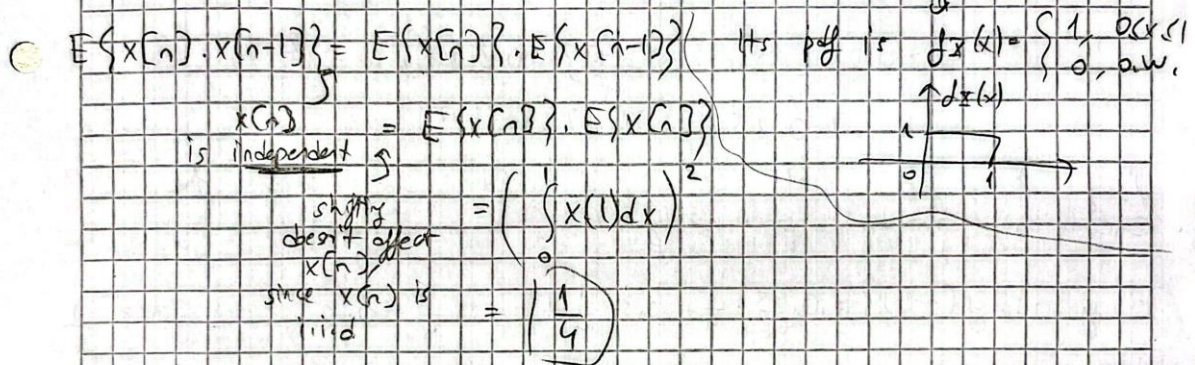 E{x[n].x[n-1]} = E{x[n]}.E{x[n-1]}
Its pdf is fx(x)= { 1, 0≤x≤1
0, o.w.
fx(x)
1
0 1
x[n]
is independent
= E{x[n]}.E{x[n]}
shifting
doesn't affect
x[n],
since x[n] is
i.i.d
= ( ∫ 0 1 x(1)dx )²
= 1/4